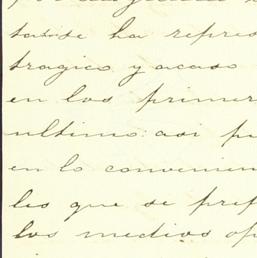 tarde ha repres
tragico y acaso
en los primer
ultimo: asi p
en lo convenien
les que se pref
los medios op